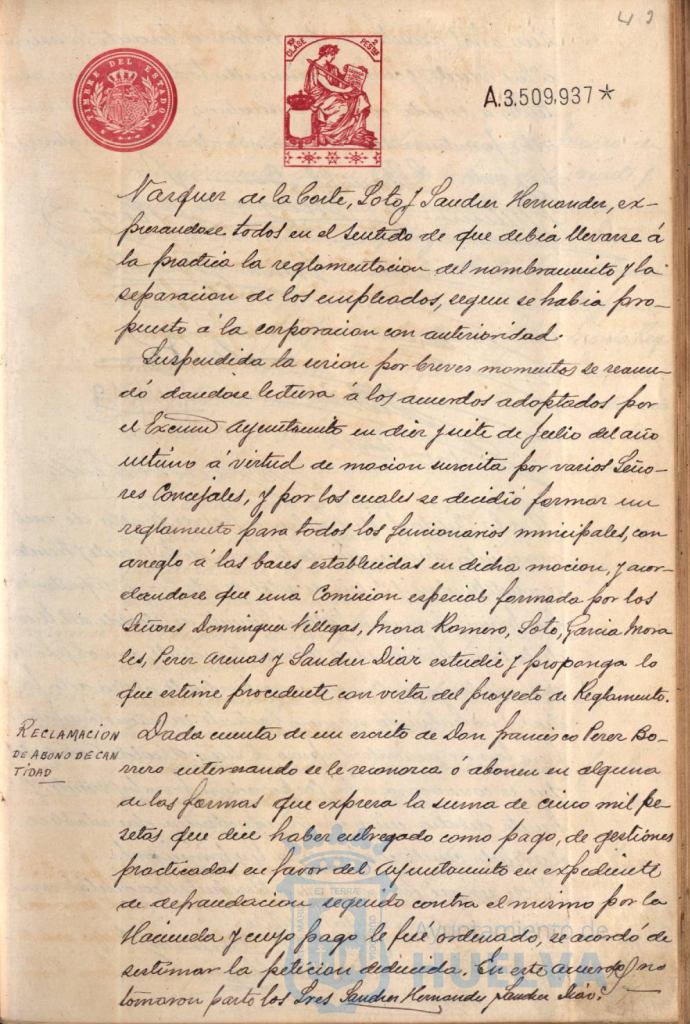 43
TIMBRE DEL ESTADO
10ª CLASE 2 PESTAS
A.3,509,937*
Vazquez de la Corte, Soto y Sanchez Hernandez, ex-
presandose todos en el sentido de que debia llevarse á
la practica la reglamentacion del nombramiento y la
separacion de los empleados, segun se habia pro-
puesto á la corporacion con anterioridad.
Suspendida la sesion por breves momentos se reanu-
dó dandose lectura á los acuerdos adoptados por
el Excmo Ayuntamiento en diez y siete de Julio del año
ultimo á virtud de mocion suscrita por varios Seño-
res Concejales, y por los cuales se decidió formar un
reglamento para todos los funcionarios municipales, con
arreglo á las bases establecidas en dicha mocion, y acor-
dandose que una Comision especial formada por los
Señores Dominguez Villegas, Mora Romero, Soto, Garcia Mora
les, Perez Arenas y Sanchez Diaz estudie y proponga lo
que estime procedente con vista del proyecto de Reglamento.
RECLAMACION
DE ABONO DE CAN
TIDAD
Dada cuenta de un escrito de Don Francisco Perez Bo-
rrero interesando se le reconozca ó abonen en alguna
de las formas que expresa la suma de cinco mil pe
setas que dice haber entregado como pago, de gestiones
practicadas en favor del Ayuntamiento en expediente
de defraudacion seguido contra el mismo por la
Hacienda y cuyo pago le fue ordenado, se acordó de
sestimar la peticion deducida. En este acuerdo no
tomaron parte los Sres Sanchez Hernandez y Sanchez Diaz.
Ayuntamiento de
HUELVA